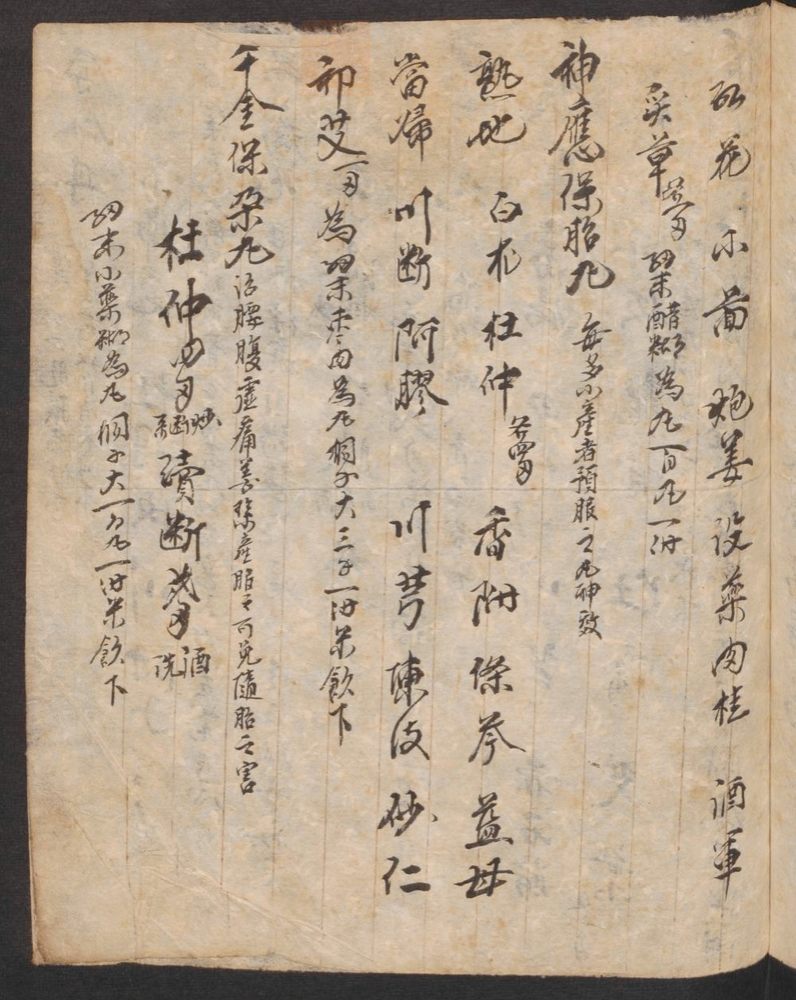 紅花 小茴 炮姜 没藥 肉桂 酒軍
炙草 各一両 細末醋糊為丸一百丸一付
神應保胎丸 每多小產者預服之丸神效
熟地 白朮 杜仲 各四両 香附 條芩 益母
當歸 川断 阿膠 川芎 陳皮 砂仁
祁艾一両 為細末枣肉為丸桐子大三千一付米飲下
千金保孕丸 治腰腹虚痛善墜產服之可免隨胎之害
杜仲四両 炒断絲 續断 酒洗
細末小藥糊為丸桐子大一百丸一付米飲下